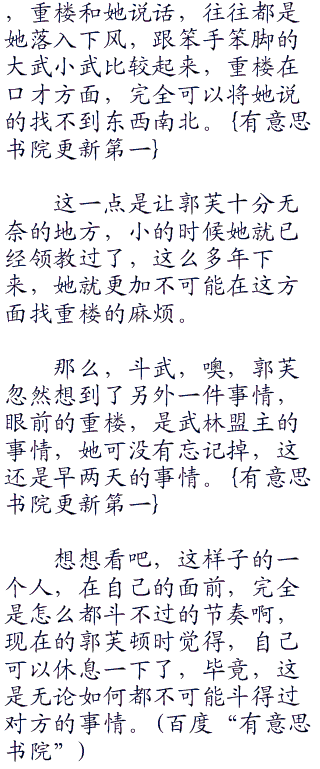 ，重楼和她说话，往往都是
她落入下风，跟笨手笨脚的
大武小武比较起来，重楼在
口才方面，完全可以将她说
的找不到东西南北。{有意思
书院更新第一}
这一点是让郭芙十分无
奈的地方，小的时候她就已
经领教过了，这么多年下
来，她就更加不可能在这方
面找重楼的麻烦。
那么，斗武，噢，郭芙
忽然想到了另外一件事情，
眼前的重楼，是武林盟主的
事情，她可没有忘记掉，这
还是早两天的事情。{有意思
书院更新第一}
想想看吧，这样子的一
个人，在自己的面前，完全
是怎么都斗不过的节奏啊，
现在的郭芙顿时觉得，自己
可以休息一下了，毕竟，这
是无论如何都不可能斗得过
对方的事情。(百度“有意思
书院”)